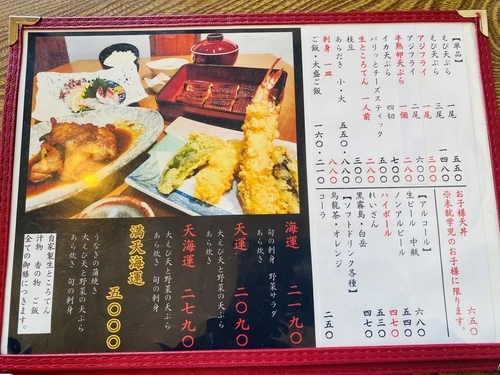 【単品】
えび天ぷら 一尾 五五〇
えび天ぷら 三尾 一四八〇
アジフライ 一尾 三〇〇
アジフライ 二尾 六〇〇
半熟卵天ぷら 一個 二〇〇
イカ天ぷら 四切 七〇〇
パリッとチーズスティック 五〇〇
生ところてん 一人前 二八〇
枝豆 三八〇
あらだき 小・大 五五〇・八八〇
刺身 一皿 八八〇
ご飯・大盛ご飯 一六〇・二一〇
お子様天丼 六五〇
※未就学児のお子様に限ります。
【アルコール】
生ビール 中瓶 六八〇
ノンアルビール 五四〇
ハイボール 四七〇
れいざん 五三〇
黒霧島・白岳 四七〇
【ソフトドリンク各種】
烏龍茶・オレンジ
コーラ 二五〇
海運 二一九〇
旬の刺身 野菜サラダ
あら炊き
天運 二〇九〇
大えび天と野菜の天ぷら
あら炊き
天海運 二七九〇
大えび天と野菜の天ぷら
あら炊き 旬の刺身
満天海運 五〇〇〇
うなぎの蒲焼き
大えび天と野菜の天ぷら
あら炊き 旬の刺身
自家製生ところてん
汁物 香の物 ご飯
全ての御膳につきます。